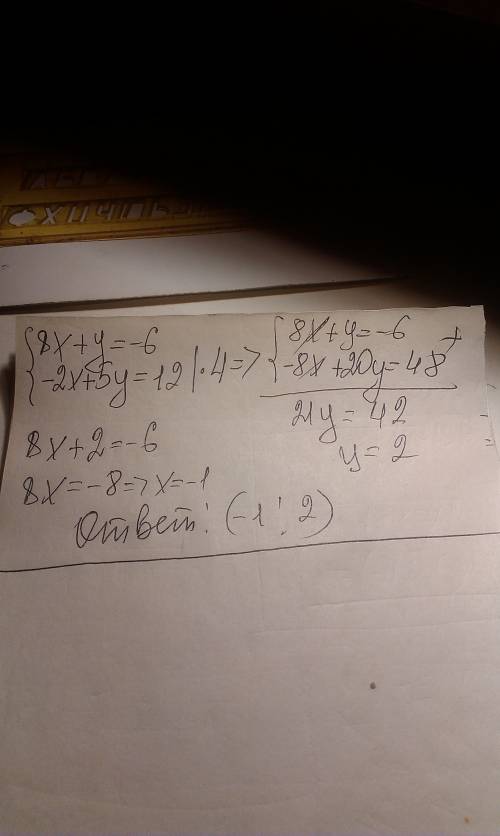 ФХЦЧ
{8x+y=-6
{-2x+5y=12 |·4 =>
{8x+y=-6
{-8x+20y=48 +
21y=42
y=2
8x+2=-6
8x=-8=>x=-1
Ответ: (-1; 2)